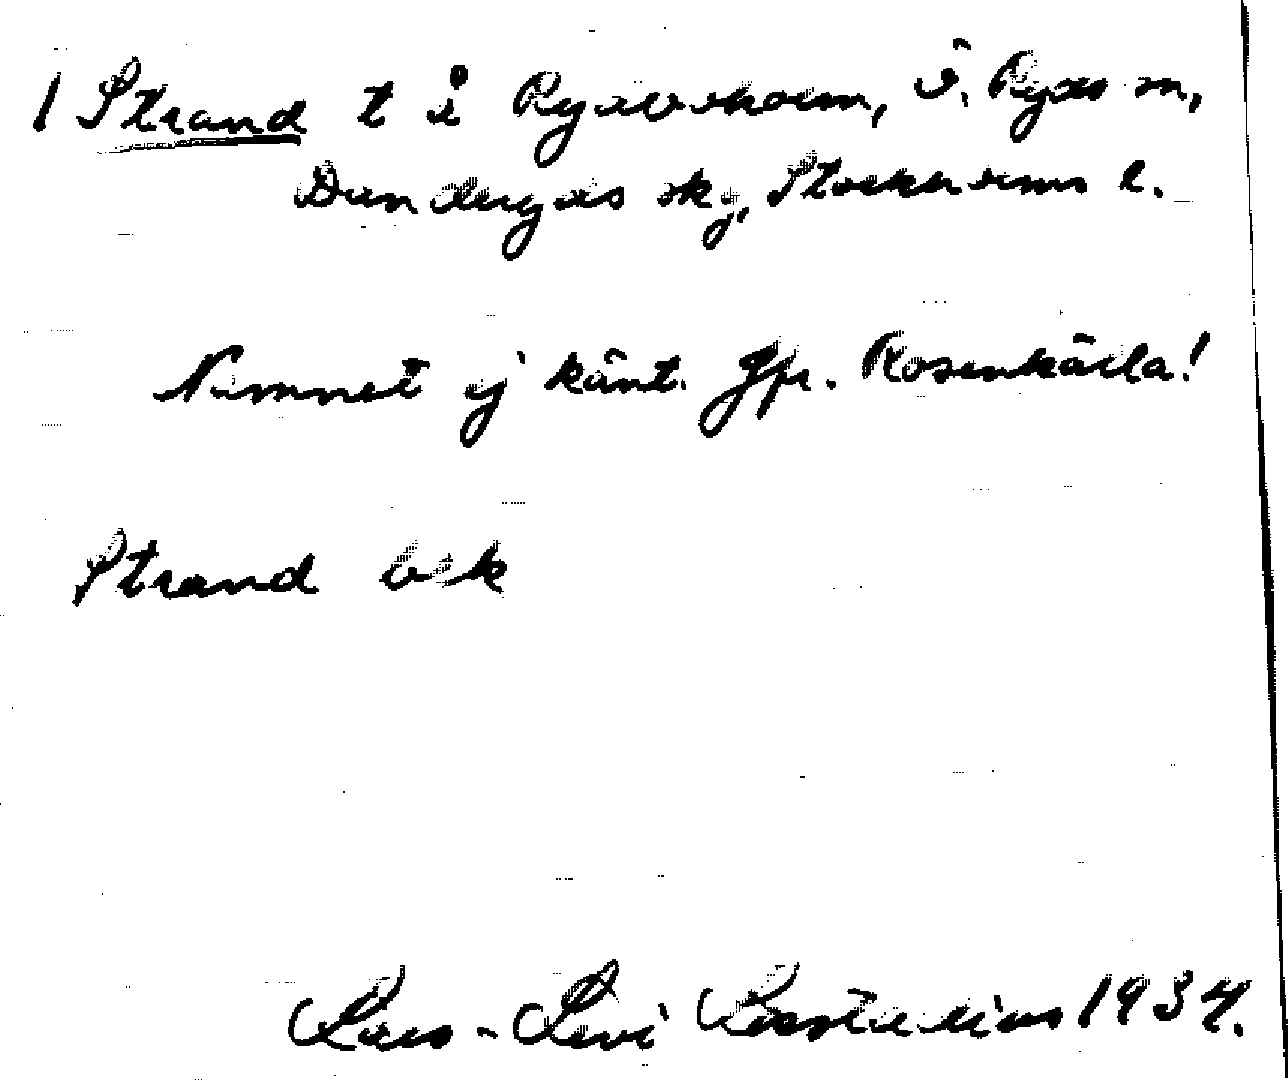 1 Strand t å Rydboholm, Ö. Ryds sn,
Danderyds skg, Stockholms l.
Namnet ej känt. Jfr. Rosenkälla!
Strand bek
Lars-Levi Læstadius 1934.